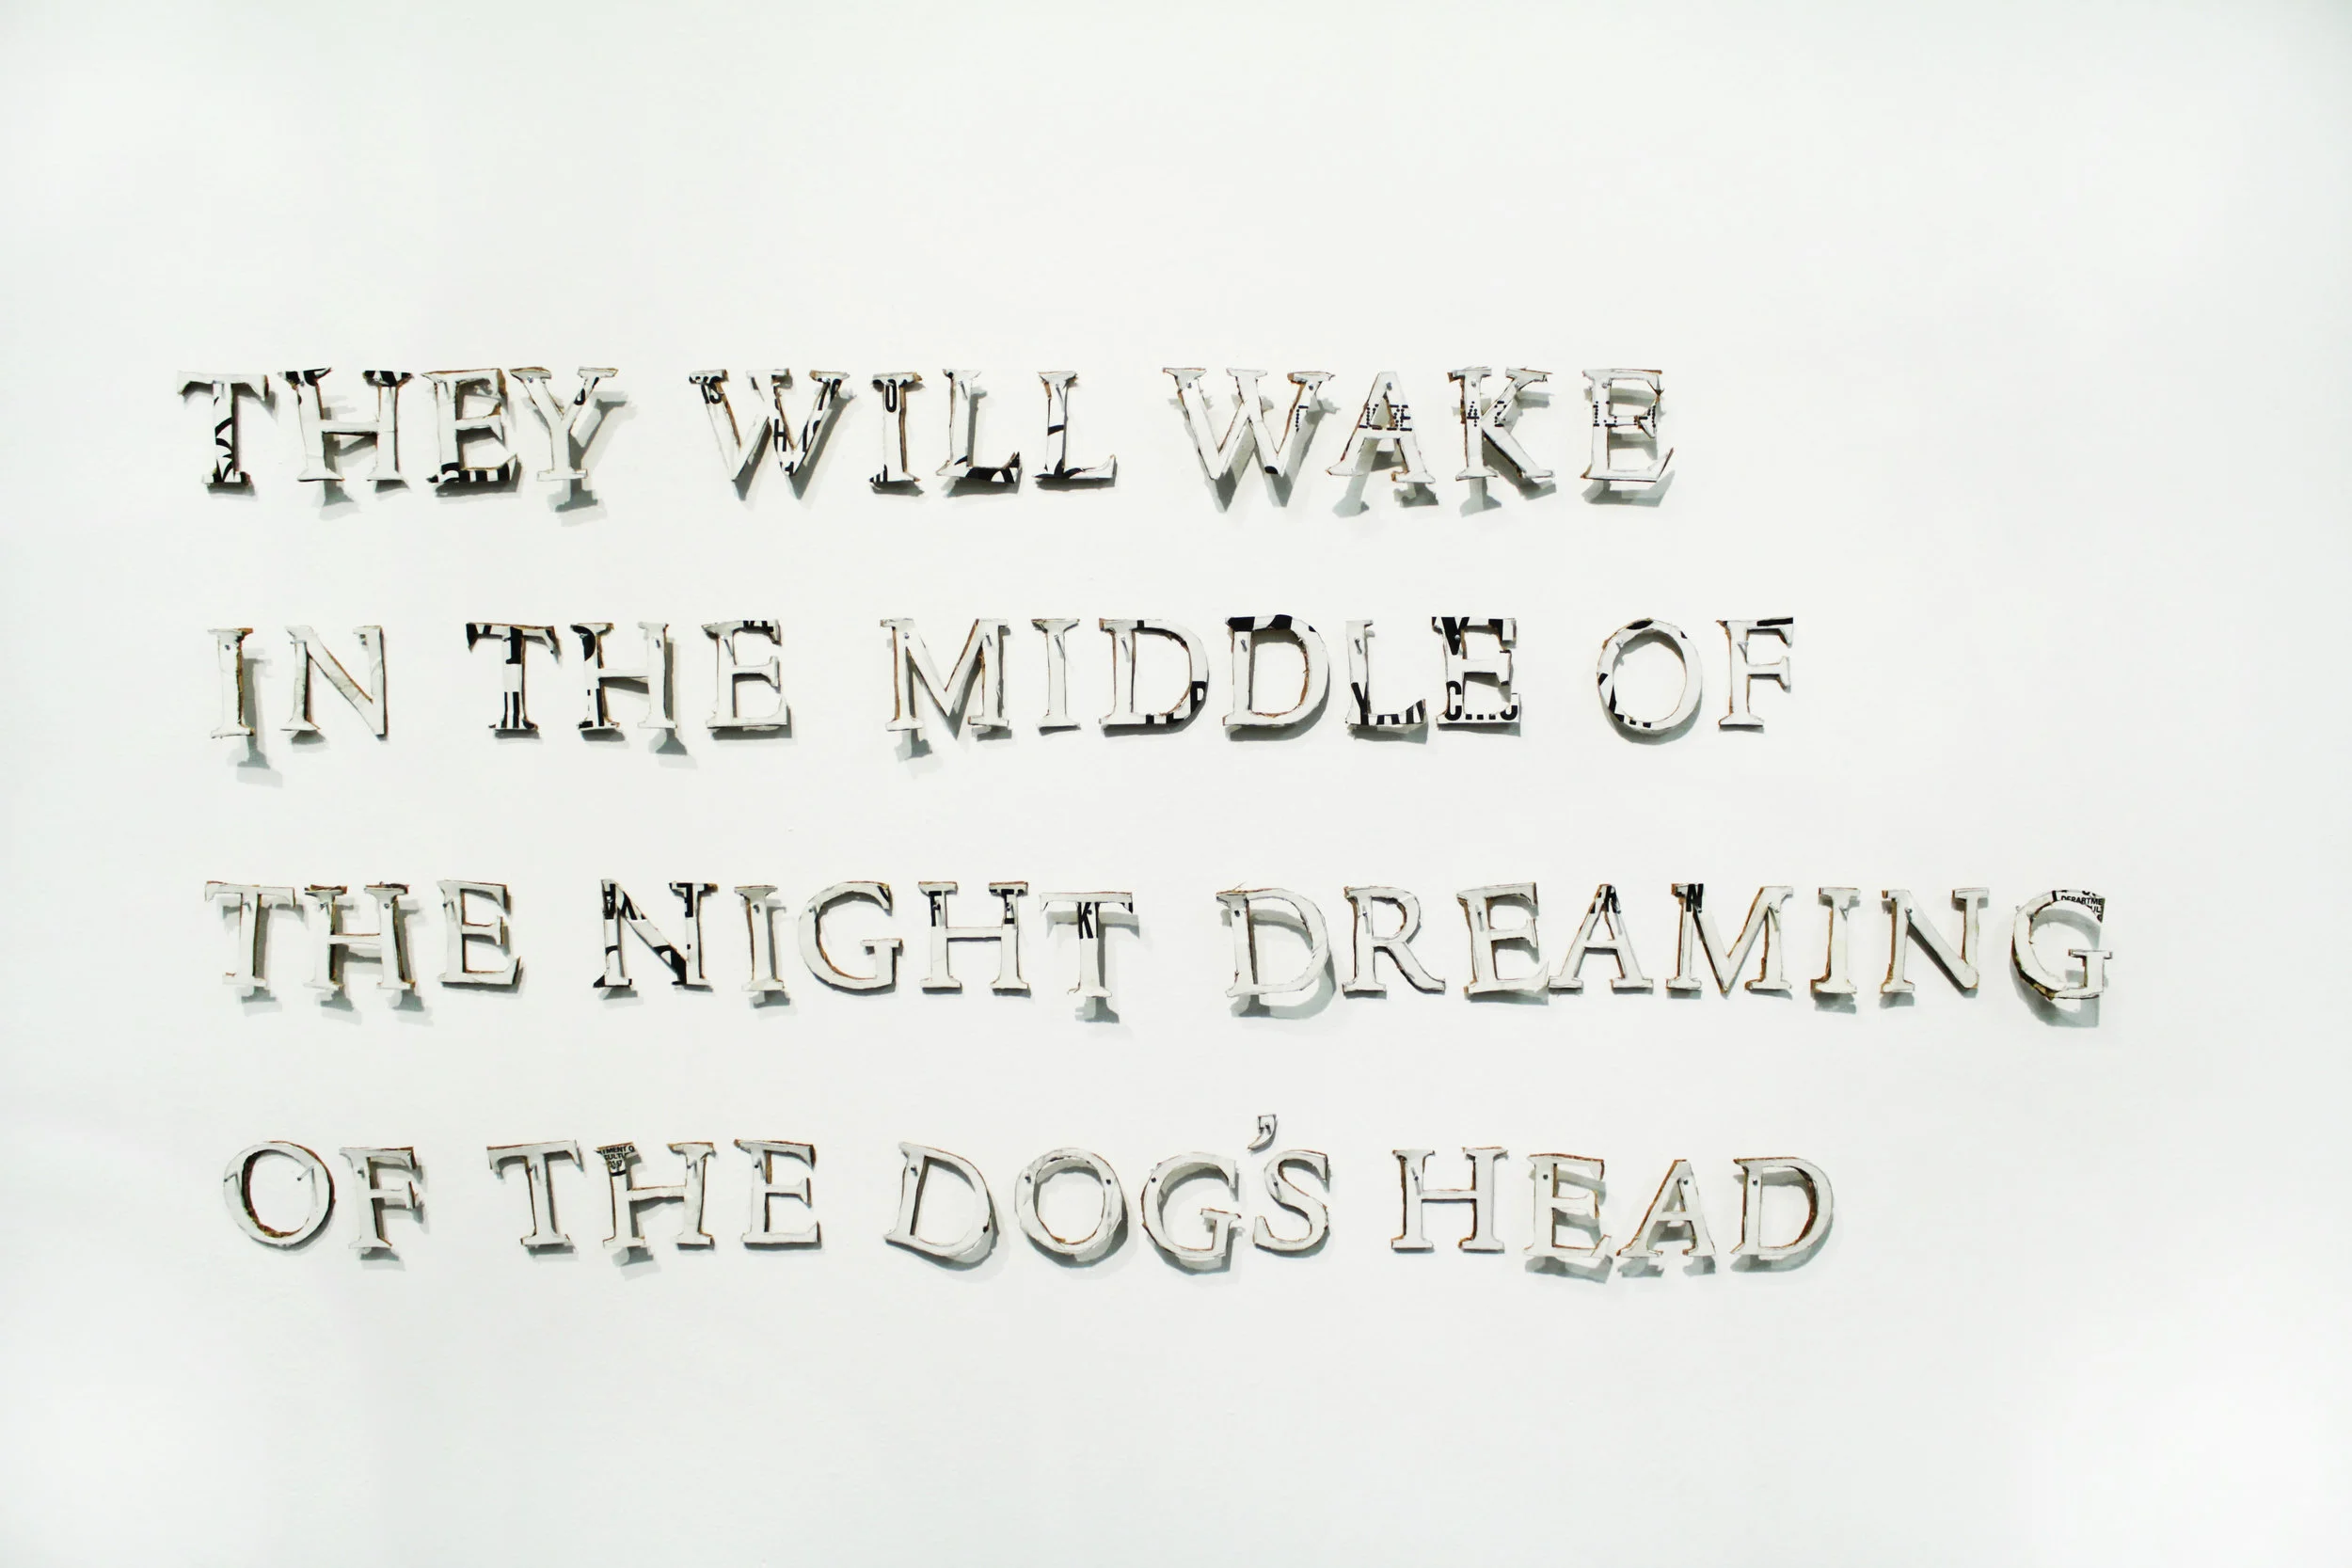 THEY WILL WAKE
IN THE MIDDLE OF
THE NIGHT DREAMING
OF THE DOG'S HEAD